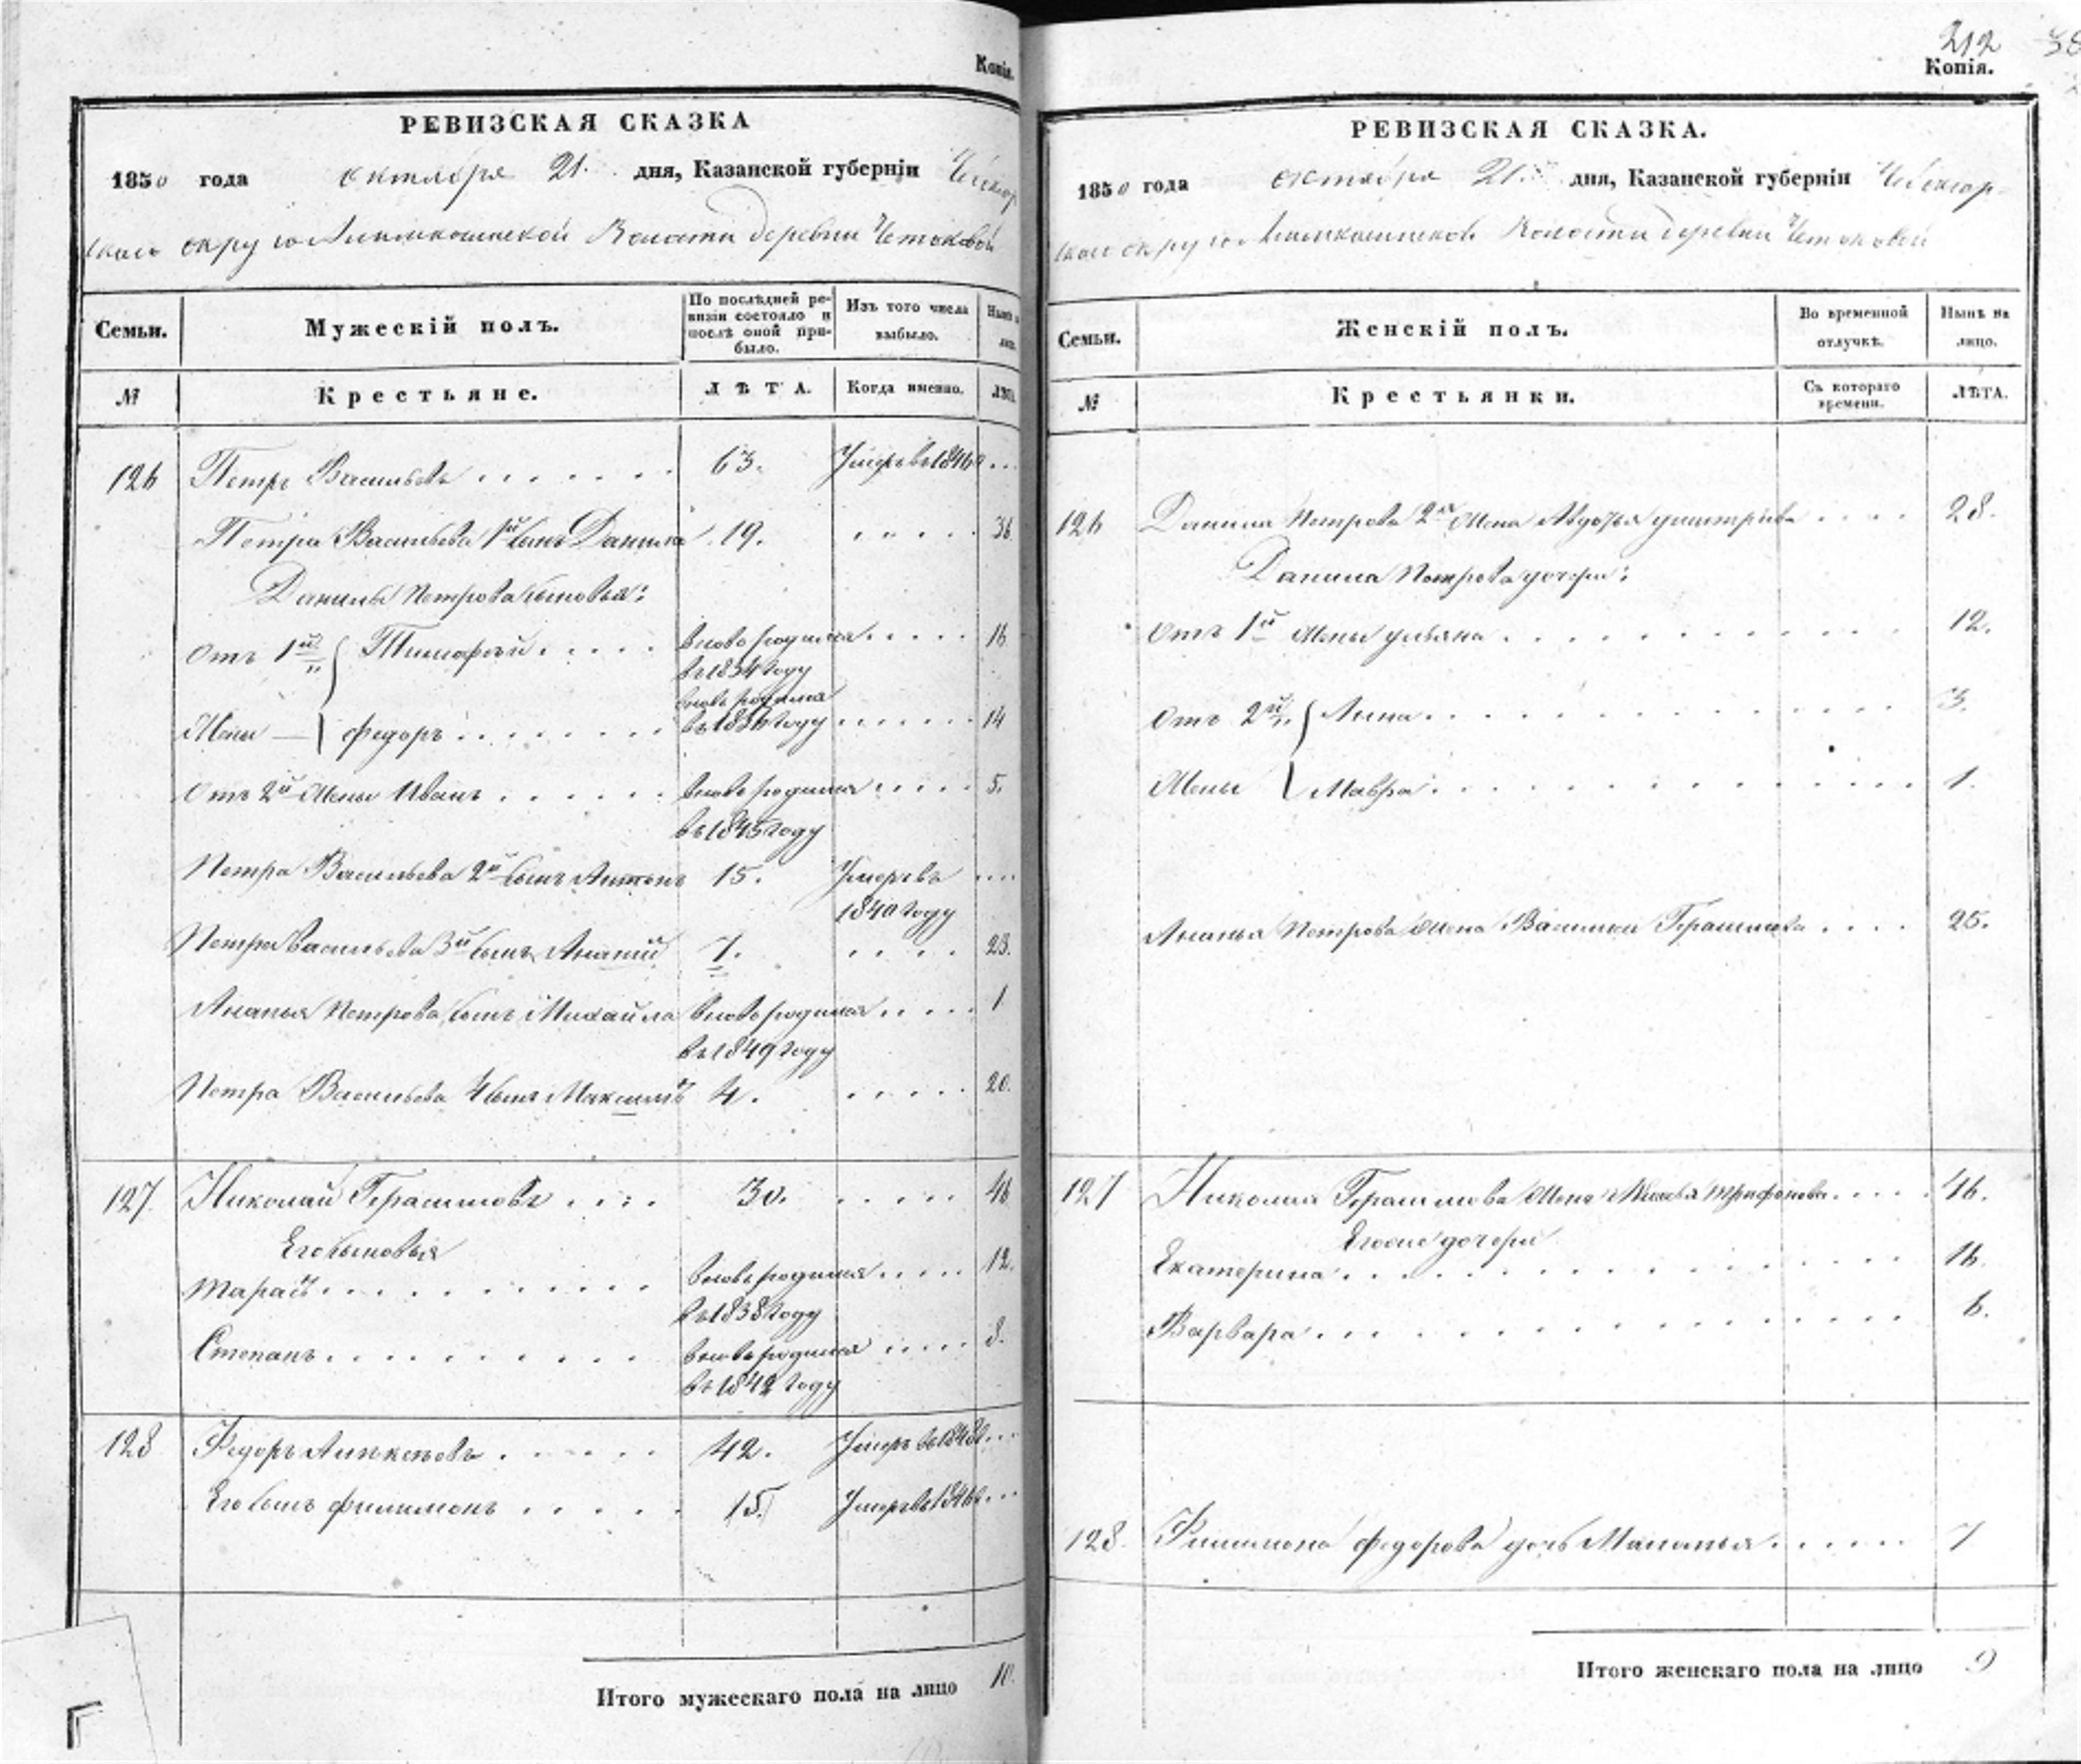 Копія.
РЕВИЗСКАЯ СКАЗКА
1850 года октября 21. дня, Казанской губерніи Чебоксар
скаго округа Липмкошинской Волости деревни Четоковой
Семьи.
Мужескій полъ.
По послѣдней ре-
визіи состояло и
послѣ оной при-
было.
Изъ того числа
выбыло.
Нынѣ
№
Крестьяне.
ЛѢТА.
Когда именно.
ЛѢТА.
126 Петръ Васильевъ . . . . . . . 63. Умеръ въ 1846 . . .
Петра Васильева 1й сынъ Данила 19. . . . . . 36.
Данилы Петрова сыновья:
Отъ 1й { Тимофей . . . . . вновь родился . . . . . 16
въ 1834 году
вновь родился
Жены — { Федоръ . . . . . . . . въ 1836 году . . . . . . 14
Отъ 2й Жены Иванъ . . . . . . вновь родился . . . . . 5.
въ 1845 году
Петра Васильева 2й сынъ Антонъ 15. Умеръ въ . . . .
1840 году
Петра Васильева 3й сынъ Ананій 7. . . . . 23.
Ананья Петрова сынъ Михайла вновь родился . . . . . 1
въ 1849 году
Петра Васильева 4 сынъ Максимъ 4. . . . . . 20.
127 Николай Герасимовъ . . . . 30. . . . . . 46
Его сыновья
Тарасъ . . . . . . . . . . вновь родился . . . . . 12.
въ 1838 году
Степанъ . . . . . . . . . вновь родился . . . . . 8.
въ 1842 году
128 Федоръ Алексѣевъ . . . . . 42. Умеръ въ 1848 . . .
Его сынъ Филимонъ . . . . . 15. Умеръ въ 1846 . . .
Итого мужескаго пола на лицо 10.
212 38
Копія.
РЕВИЗСКАЯ СКАЗКА.
1850 года октября 21. дня, Казанской губерніи Чебоксар-
скаго округа Волости деревни Четоковой
Семьи.
Женскій полъ.
Во временной
отлучкѣ.
Нынѣ на
лицо.
№
Крестьянки.
Съ котораго
времени.
ЛѢТА.
126 Данила Петрова 2я Жена Авдотья Дмитріева . . . . 28.
Данила Петрова дочери:
Отъ 1й Жены Ульяна . . . . . . . . . . . 12.
Отъ 2й { Анна . . . . . . . . . . . . 3.
Жены { Мавра . . . . . . . . . . . . 1.
Ананья Петрова жена Василиса Герасимова . . . . 25.
127 Николая Герасимова Жена Трифонова . . . . 46.
Его же дочери
Екатерина . . . . . . . . . . . . . 16.
Варвара . . . . . . . . . . . . . 6.
128. Филимона Федорова дочь Маланья . . . . . 7
Итого женскаго пола на лицо 9